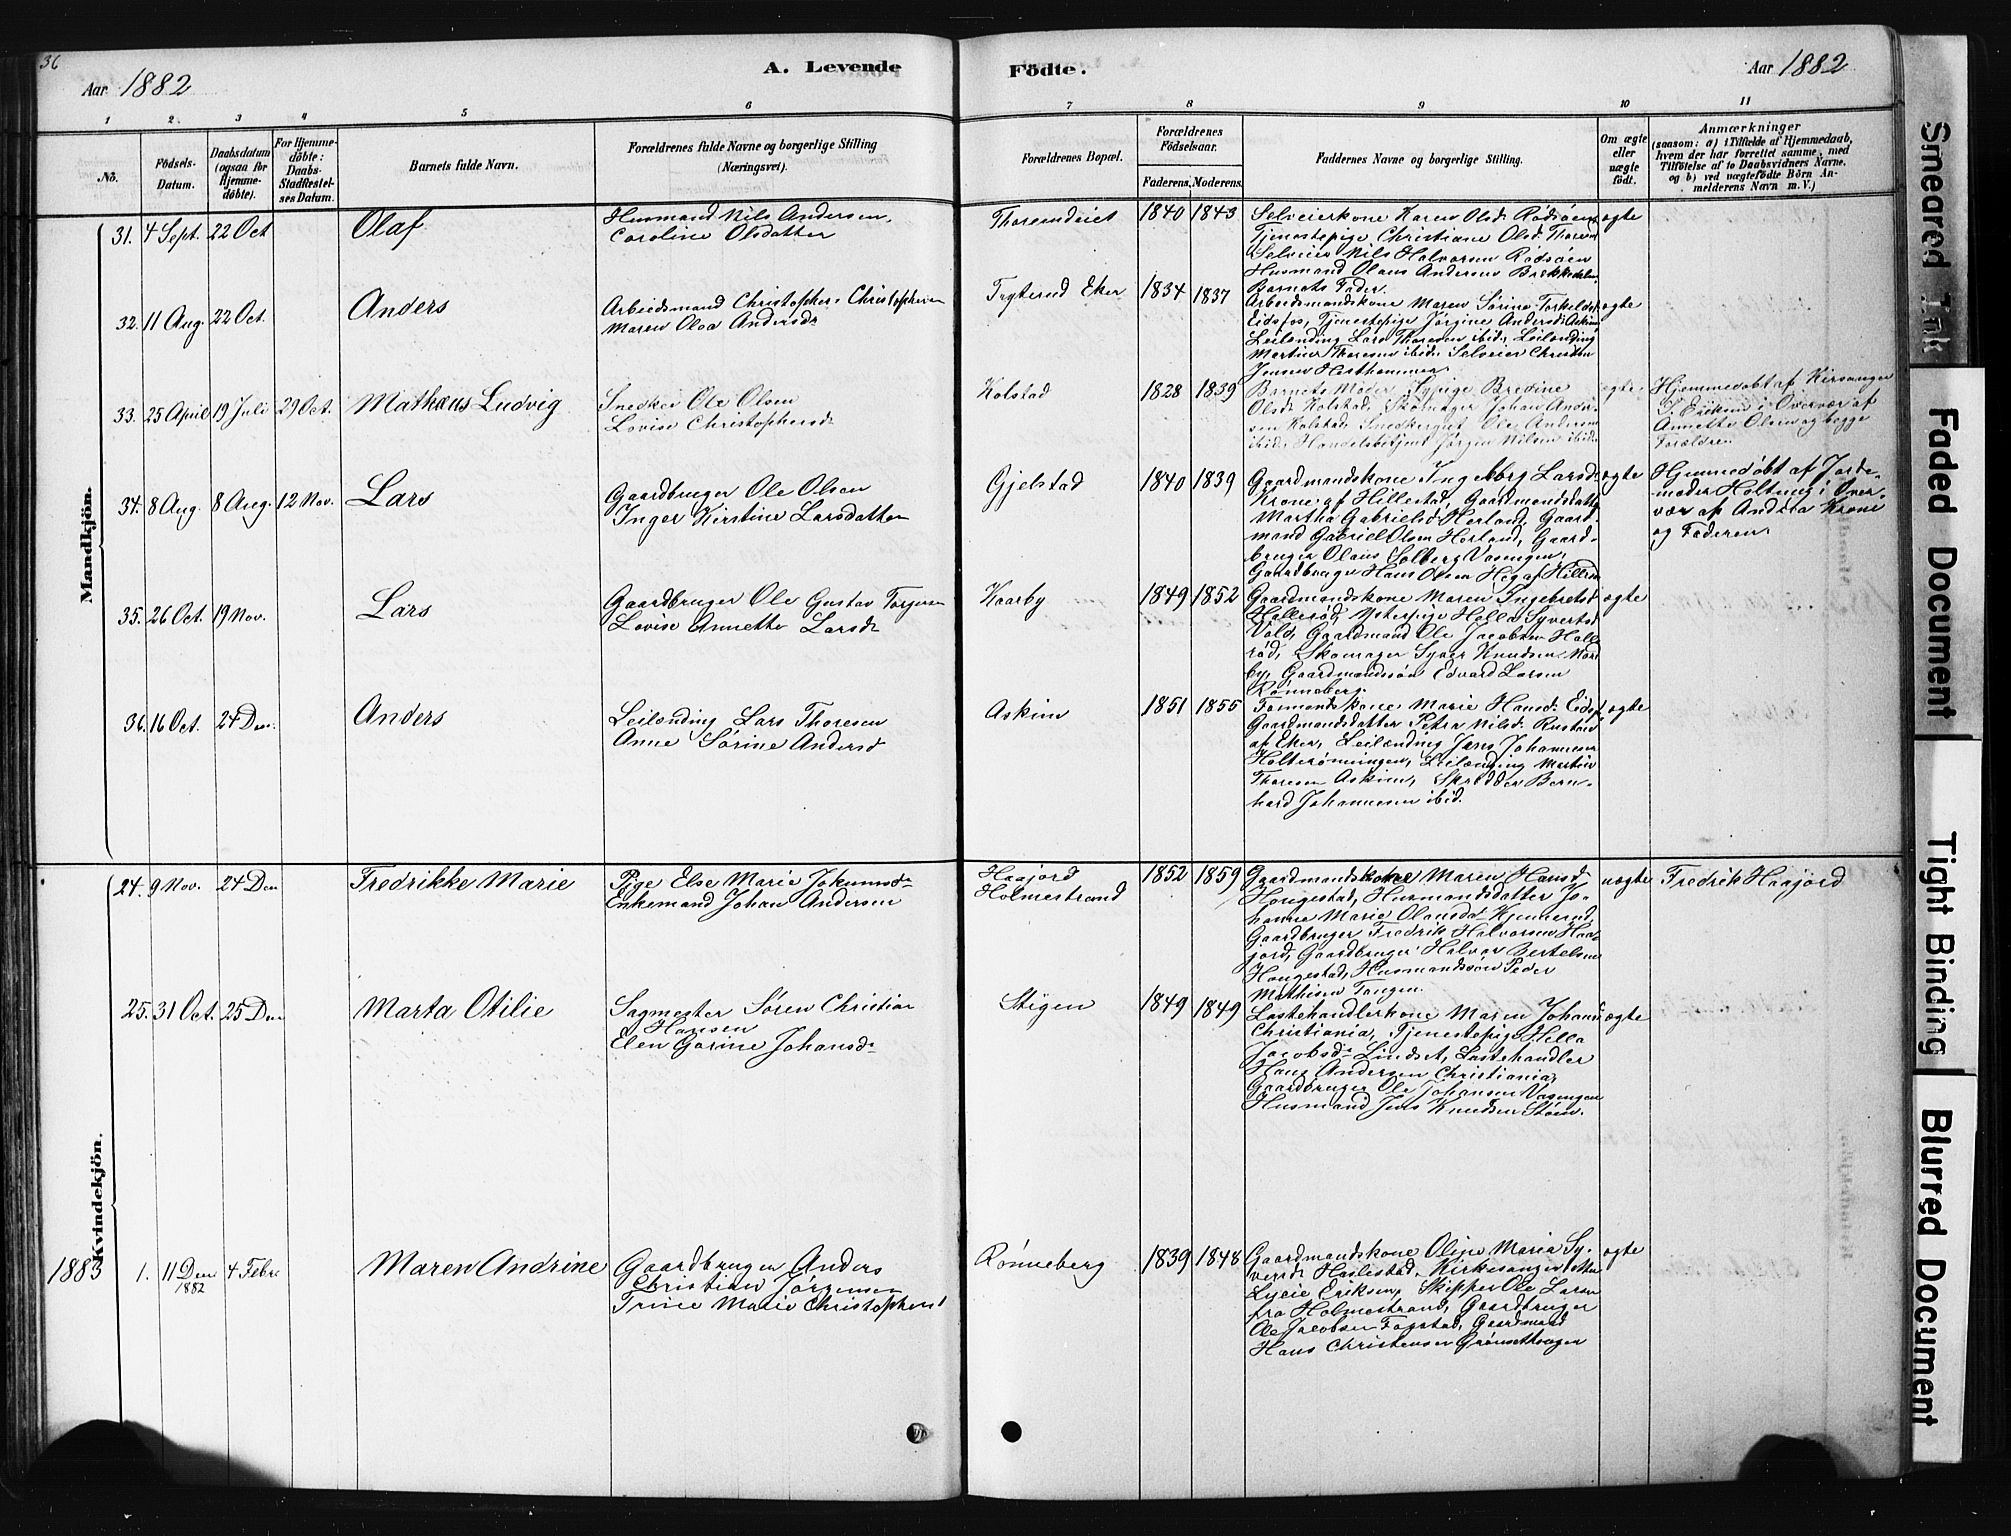 36
Aar 1882
A. Levende
Födte.
Aar 1882
1 2 3 4 5 6 7 8 9 10 11
No.
Födsels-
Datum.
Daabsdatum
(ogsaa for
Hjemme-
döbte).
For Hjemme-
döbte:
Daabs-
Stadfæstel-
ses Datum.
Barnets fulde Navn.
Forældrenes fulde Navne og borgerlige Stilling
(Næringsvei).
Forældrenes Bopæl.
Forældrenes
Födselsaar.
Faderens.
Moderens.
Faddernes Navne og borgerlige Stilling.
Om ægte
eller
uægte
födt.
Anmærkninger
(saasom: a) i Tilfælde af Hjemmedaab,
hvem der har forrettet samme, med
Tilföielse af to Daabsvidners Navne,
og b) ved uægtefödte Börn An-
melderens Navn m. V.)
Mandkjön.
31. 4 Sept. 22 Oct
Olaf
Husmand Nils Andersen,
Caroline Olsdatter
1840 1843
Selveierkone Karen Olsd. Rødsøen
Tjenestepige Christiane Olsd.
Selveier Nils Halvorsen Rødsøen
Husmand Olaus Andersen
Barnets Fader.
ægte
32. 11 Aug. 22 Oct.
Anders
Arbeidsmand Christopher Christophersen
Maren Olea Andersdr
Eker
1834 1837
Arbeidsmandskone Maren Sørine Torkeldsd.
Eidsfos, Tjenestepige Jørgine Andersdr Askim
Leilænding Lars Thoresen ibid. Leilænding
Martin Thoresen ibid. Selveier Christen
Jensen Hesthammer
ægte
33. 25 April 19 Juli 29 Oct.
Mathæus Ludvig
Snedker Ole Olsen
Lovise Christophersdr
Kolstad
1828 1839
Barnets Moder, Sypige
Olsdr Kolstad, Skomager Johan
Kolstad, Ole Andersen
ibid. Handelsbetjent Jørgen Nilsen ibid.
ægte
Hjemmedøbt af Kirsanger
Eriksen i Overvær af
Annette Olsen og begge
Forældre.
34. 8 Aug. 8 Aug. 12 Nov.
Lars
Gaardbruger Ole Olsen
Inger Kirstine Larsdatter
Gjelstad
1840 1839
Gaardmandskone Ingeborg Larsd.
Krone af Hillestad, Gaardmandsdatter
Martha Gabrielsd. Horland, Gaard-
mand Gabriel Olsen Horland, Gaard-
bruger Olaus Solberg Vasengen,
Gaardbruger Hans Olsen af
ægte
Hjemmedøbt af Jorde-
moder Holtung i Over-
vær af Andrea Krone
og Faderen
35. 26 Oct. 19 Nov.
Lars
Gaardbruger Ole Gustav Torgersen
Lovise Annette Larsdr
Kaarby
1849 1852
Gaardmandskone Maren Ingebretsd.
Hallerød, Hella Syvertsd.
Vold, Gaardmand Ole Jacobsen Halle-
rød, Skomager Syver Knudsen
by, Gaardmandssøn Edvard Larsen
Rønneberg.
ægte
36. 16 Oct. 24 Dec.
Anders
Leilænding Lars Thoresen
Anne Sørine Andersd
Askim
1851 1855
Marie Hansd. Eidsf.,
Gaardmandsdatter Petra Nilsd. Rustad
af Eker, Leilænding Jens Johannesen
Leilænding Martin
Thoresen Askim, Skrædder Bern-
hard Johannesen ibid.
ægte
Kvindekjön.
24. 9 Nov. 24 Dec
Fredrikke Marie
Pige Else Marie
Enkemand Johan Andersen
Haajord
Holmestrand
1852 1859
Gaardmandskone Maren Hansd
Hougestad, Husmandsdatter Jo-
hanne Maria Olausdr
Gaardbruger Fredrik Halvorsen Haa-
jord, Gaardbruger Halvor Bertelsen
Hougestad, Husmandssøn Peder
Mathisen Tangen.
uægte
Fredrik Haajord
25. 31 Oct. 25 Dec
Marta Otilie
Sagmester Søren Christian
Hansen
Elen Gorine Johansdr
Stigen
1849 1849
Lastehandlerkone Maren Johans
Christiania, Tjenestepige Hella
Jacobsdr Lindset, Lastehandler
Hans Andersen Christiania,
Gaardbruger Ole Johansen Vasengen
Husmand Jens Knudsen Støen.
ægte
1883 1. 11 Dec 4 Febr
1882
Maren Andrine
Gaardbruger Anders
Christian Jørgensen
Trine Marie Christophersd
Rønneberg
1839 1848
Gaardmandskone Oline Maria Sy-
versdr Haslestad, Kirkesanger
Lycie Eriksen, Skipper Ole Larsen
fra Holmestrand, Gaardbruger
Ole Jacobsen Fogstad, Gaardmand
Hans Christensen
ægte
Smeared Ink
Faded Document
Tight Binding
Blurred Document